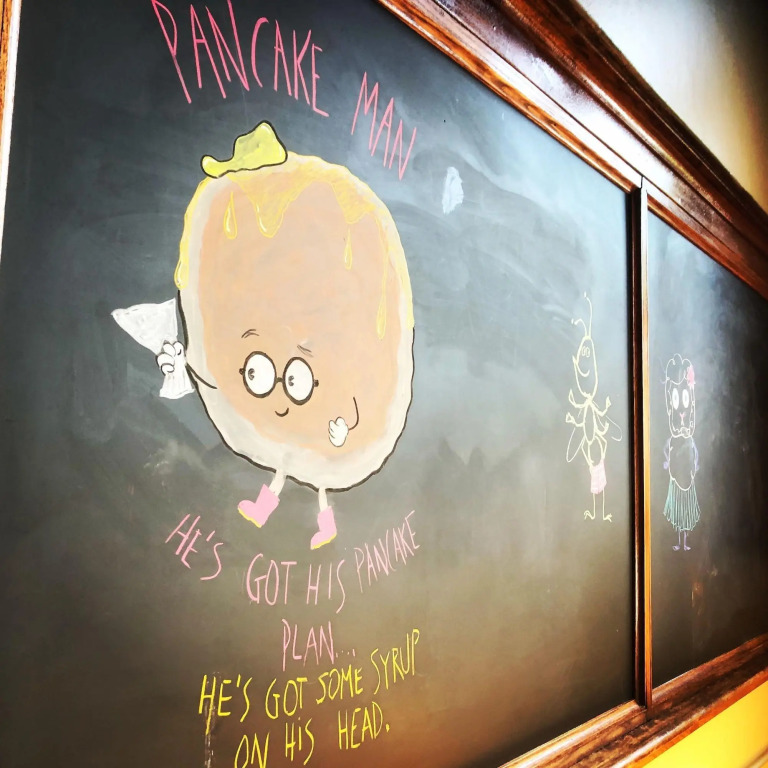 PANCAKE MAN
HE'S GOT HIS PANCAKE
PLAN...
HE'S GOT SOME SYRUP
ON HIS HEAD.